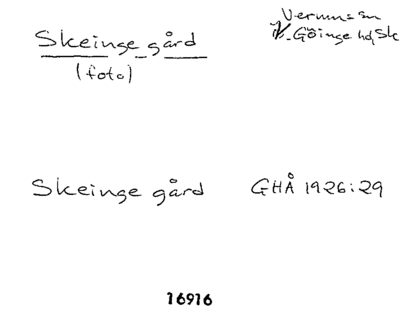 Skeinge gård
(foto)
Verums sn
V. Göinge hd, Sk
Skeinge gård GHÅ 1926:29
16916